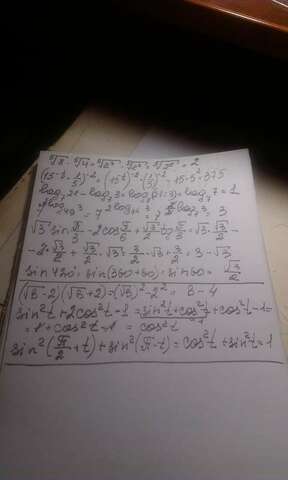 (15·2·1/5)^-2 = (15^-1)^-2·(1/5)^-2 = 15·5² = 375
log₇21 - log₇3 = log₇(21:3) = log₇7 = 1
√3 sin π/3 - 2cos π/6 + √3/2 tg π/3 = √3·√3/2 -
- 2·√3/2 + √3/2·√3 = 3/2 - √3 + 3/2 = 3 - √3
sin 420° = sin(360+60) = sin 60 = √3/2
(√8-2)(√8+2) = (√8)²-2² = 8-4
sin²t + 2cos²t - 1 = sin²t + cos²t + cos²t - 1 =
= 1 + cos²t - 1 = cos²t
sin²(π/2 + t) + sin²(π - t) = cos²t + sin²t = 1